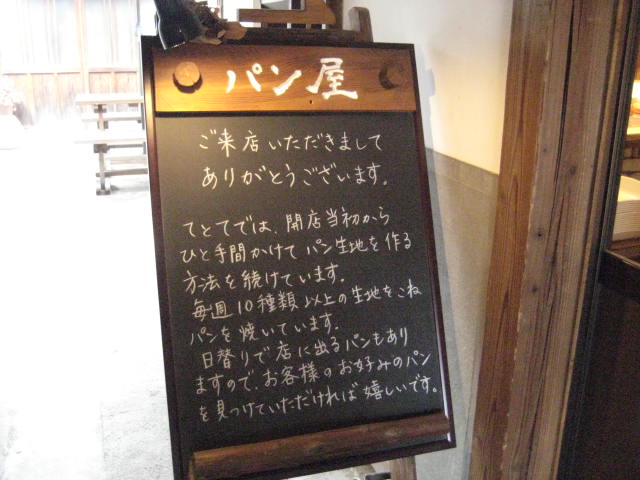 パン屋
ご来店いただきまして
ありがとうございます。
てとてでは、開店当初から
ひと手間かけてパン生地を作る
方法を続けています。
毎週10種類以上の生地をこね
パンを焼いています。
日替りで店に出るパンもあり
ますので、お客様のお好みのパン
を見つけていただければ嬉しいです。